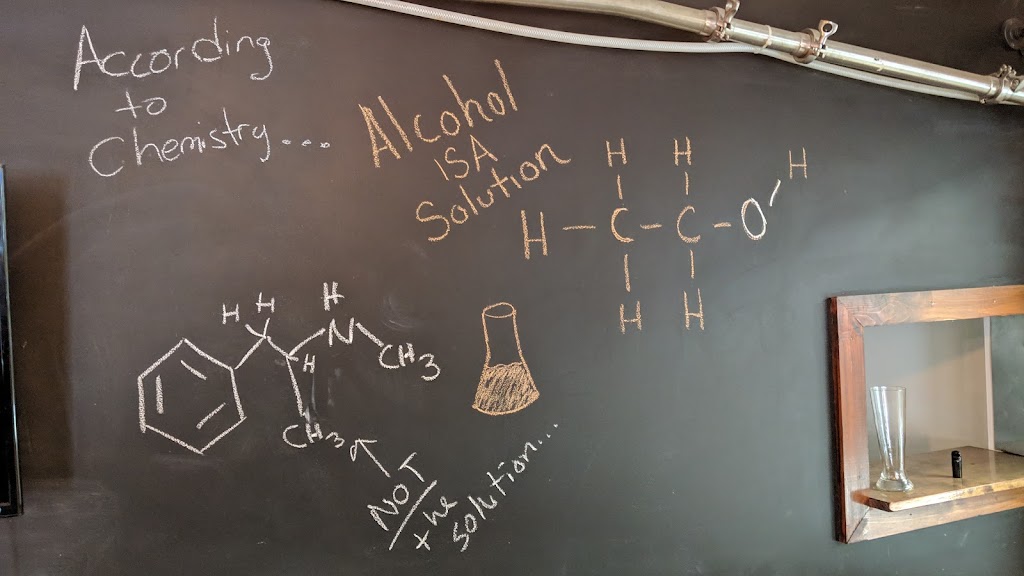 According
to
Chemistry...
Alcohol
IS A
Solution
H H H
H – C – C – O
H H
H H H
N
H CH3
CH3
NOT
the
solution...